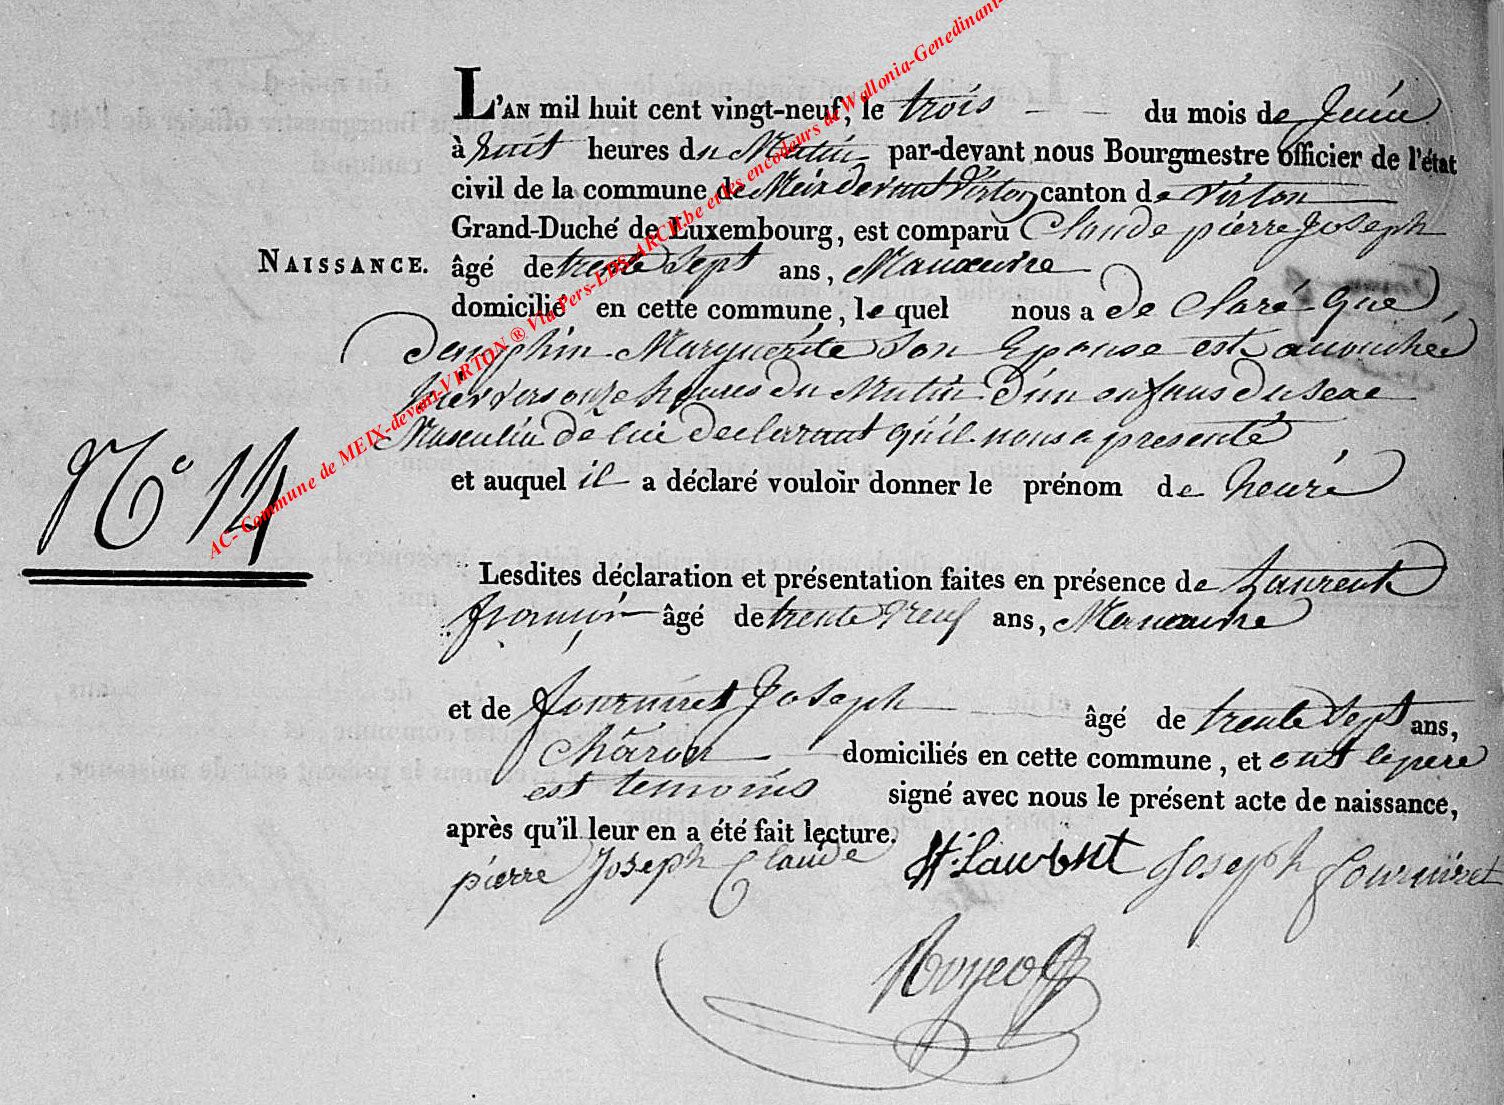 L'AN mil huit cent vingt-neuf, le trois du mois de Juin
à huit heures du Matin par-devant nous Bourgmestre officier de l'état
civil de la commune de Meix devant Virton canton de Virton
Grand-Duché de Luxembourg, est comparu Claude pierre Joseph
NAISSANCE. âgé de trente Sept ans, Manoeuvre
domicilié en cette commune, le quel nous a de Claré que
Marguerite Son Epouse est accouchée
hier vers onze heures du Matin D'un enfans du sexe
Masculin de lui declarant qu'il nous a presenté
et auquel il a déclaré vouloir donner le prénom de henré
N° 14
Lesdites déclaration et présentation faites en présence de Laurent
françois âgé de trente Neuf ans, Manoeuvre
et de fourniret Joseph âgé de trente Sept ans,
Charon domiciliés en cette commune, et ont le pere
est temoins signé avec nous le présent acte de naissance,
après qu'il leur en a été fait lecture.
pierre Joseph Claude Laurent Joseph fourniret
AC- Commune de MEIX-devant-VIRTON ® Via Pers-EDS-ARCH.be et les encodeurs de Wallonia-Genedinant-